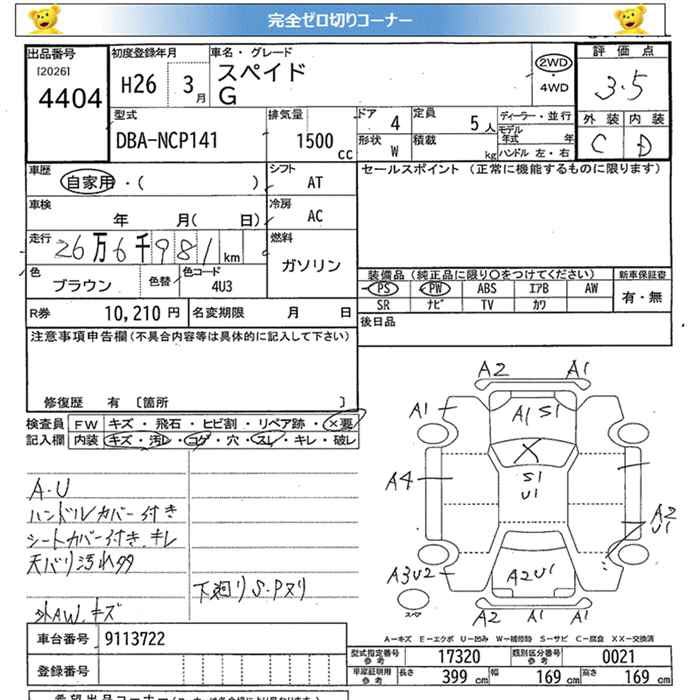 完全ゼロ切りコーナー
出品番号
[2026]
4404
初度登録年月
H26 3月
車名・グレード
スペイド
G
2WD
・
4WD
評価点
3.5
外装 内装
C D
型式
DBA-NCP141
排気量
1500 cc
ドア 4
形状 W
定員 5人
積載 kg
ディーラー・並行
モデル年式 年
ハンドル 左・右
車歴
自家用・( )
シフト
AT
セールスポイント (正常に機能するものに限ります)
車検
年 月( 日)
冷房
AC
走行
26万6千981km
燃料
ガソリン
色
ブラウン
色替
色コード
4U3
装備品 (純正品に限り〇をつけてください)
PS PW ABS エアB AW
SR ナビ TV カワ
新車保証書
有・無
R券 10,210 円
名変期限 月 日
後日品
注意事項申告欄 (不具合内容等は具体的に記入して下さい)
修復歴 有 〔箇所 〕
検査員記入欄
FW キズ・飛石・ヒビ割・リペア跡・×要
内装 キズ・汚レ・コゲ・穴・スレ・キレ・破レ
A・U
ハンドルカバー付き
シートカバー付き、キレ
天バリ汚れ多
下廻りS・Pヌリ
外AW、キズ
A2 A1
A1 A1 S1
X
A4 S1
U1
A2
U1
A3U2 A2U1
A2 A1 A1
スペア
A－キズ E－エクボ U－凹み W－補修跡 S－サビ C－腐食 XX－交換済
車台番号 9113722
登録番号
型式指定番号 参考 17320
類別区分番号 参考 0021
車庫証明用 参考
長さ 399 cm
幅 169 cm
高さ 169 cm
希望出品コーナー